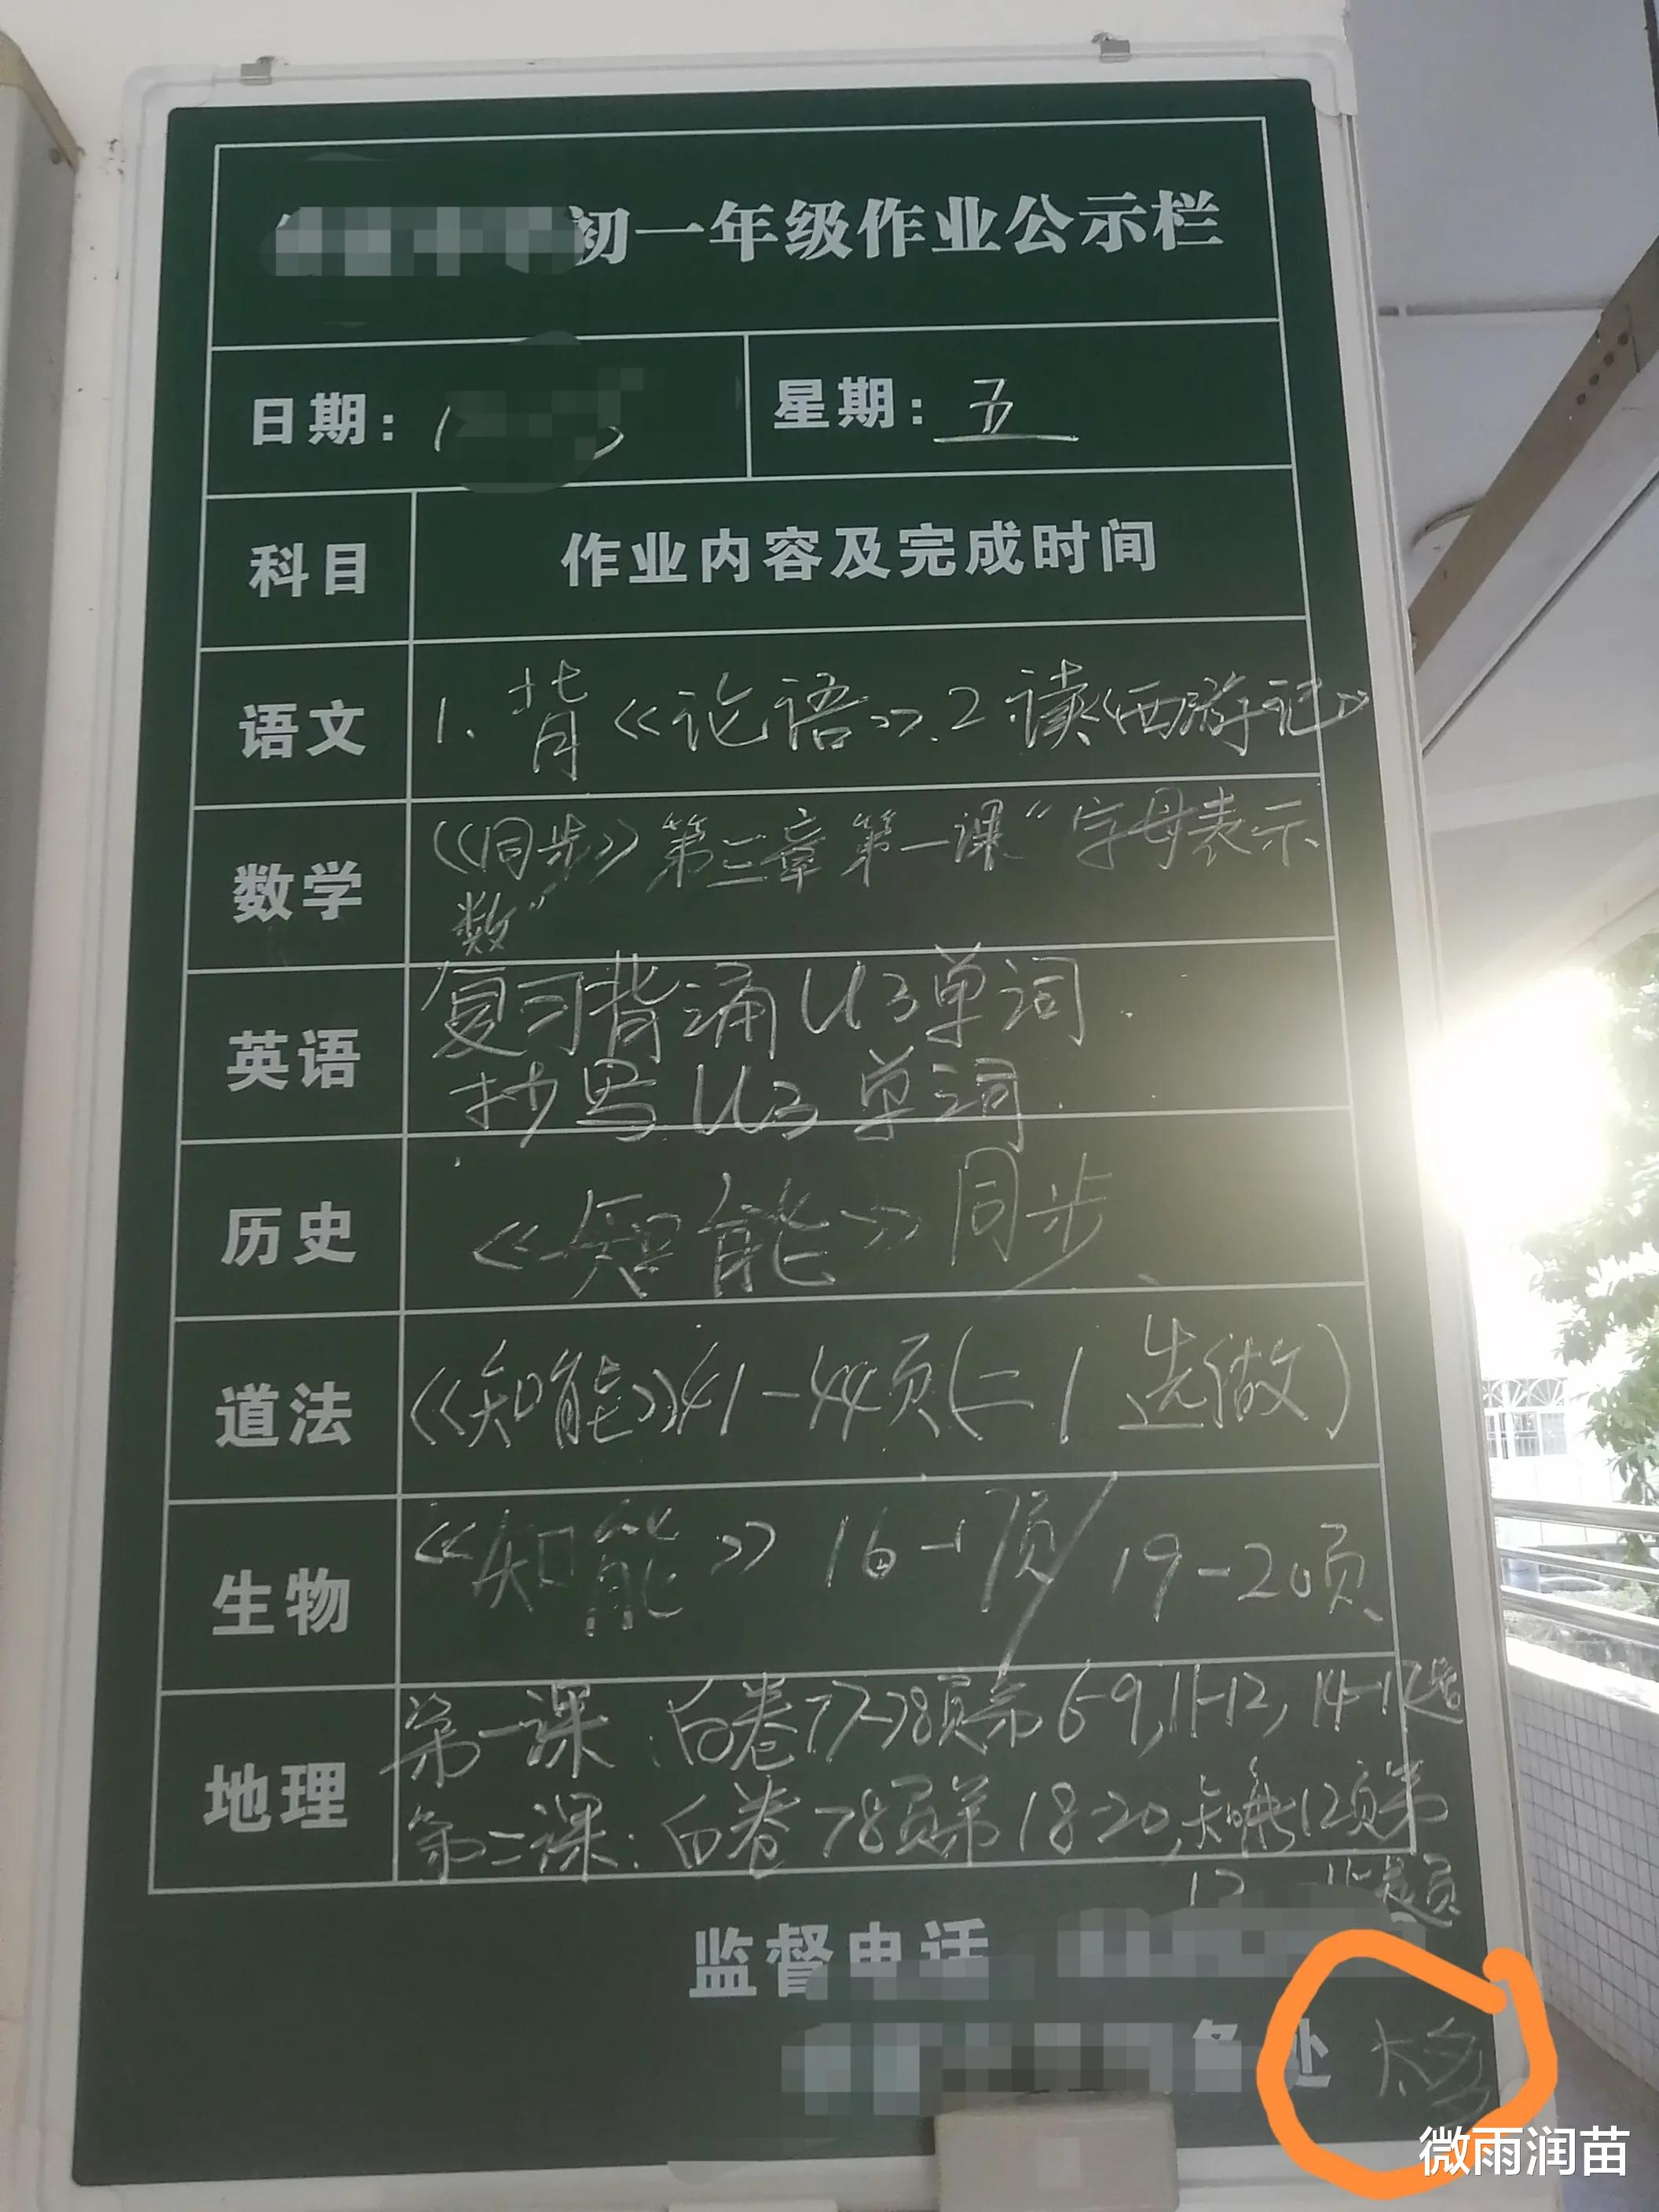 初一年级作业公示栏
日期: 星期: 五
科目 作业内容及完成时间
语文 1、背《论语》.2读《西游记》
数学 《同步》第三章第一课“字母表示
数”
英语 复习背诵U3单词.
抄写U3单词.
历史 《知能》同步
道法 《知能》41-44页(二1选做)
生物 《知能》16-17页/19-20页
地理 第一课:白卷77-78页第6-9,11-12,14-17题
第二课:白卷78页第18-20,知能12页第
监督电话
处 太多
微雨润苗